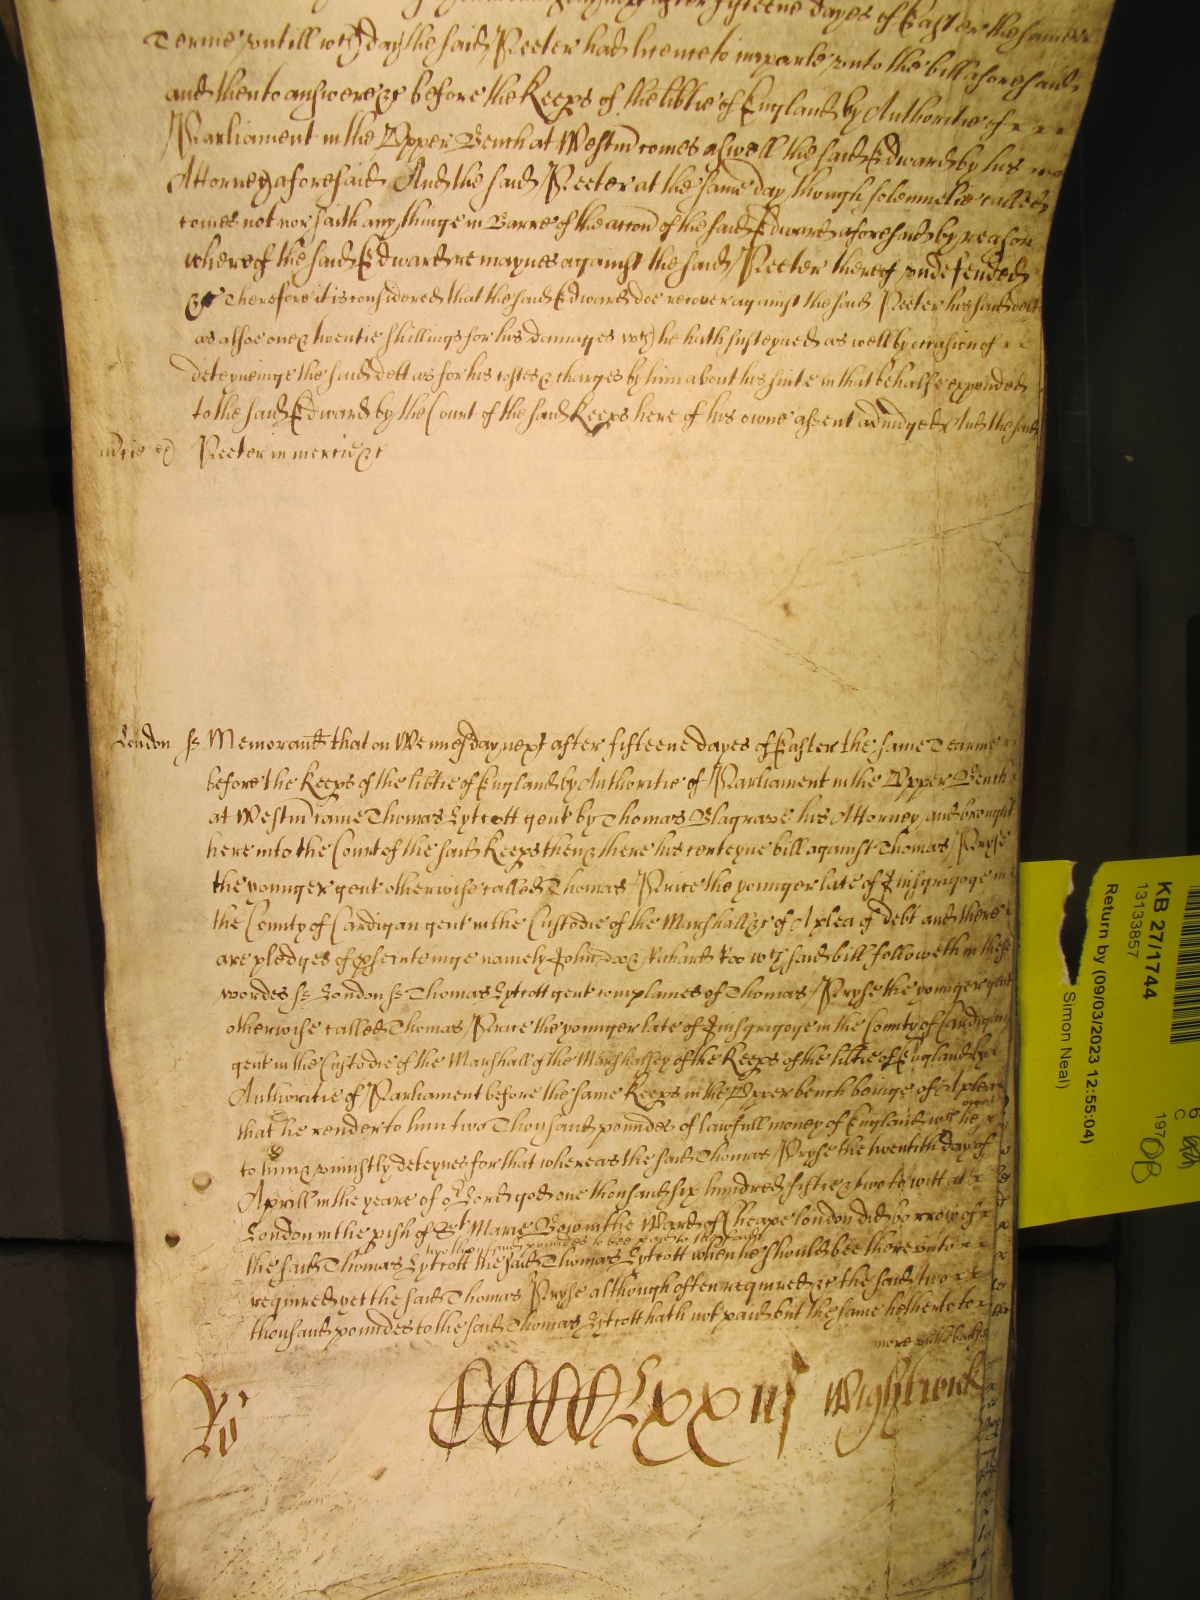 fifteene dayes of Easter the same
Terme untill wch day the said Peeter had licence to imparle unto the bill aforesaid
and then to answere &c before the Keeps of the libtie of England by Authoritie of
Parliament in the Upper Bench at Westm comes aswell the said Edward by his
Attorney aforesaid And the said Peeter at the same day though solemnelie called
comes not nor saith any thinge in Barre of the accon of the said Edward aforesaid by reason
whereof the said Edward remaynes against the said Peeter thereof undefended
&c Therefore it is considered that the said Edward doe recover against the said Peeter his said debt
as alsoe one & twentie shillings for his damages wch he hath susteyned as well by occasion of
deteyneinge the said debt as for his costes & charges by him about his suite in that behalfe expended
to the said Edward by the Court of the said Keeps here of his owne assent adiudged And the said
Peeter in mercie &c
London ss Memorand that on Wennesday next after fifteene dayes of Easter the same Tearme
before the Keeps of the libtie of England by Authoritie of Parliament in the Upper Bench
at Westm came Thomas Lytcott gent by Thomas Blagrave his Attorney and brought
here into the Court of the said Keeps then & there his certeyne bill against Thomas Pryse
the younger gent otherwise called Thomas Price the younger late of in
the County of Cardigan gent in the Custodie of the Marshall &c of A plea of debt and there
are pledges of psecuteinge namely John Doo & Richard Roo wch said bill followeth in these
wordes ss London ss Thomas Lytcott gent complaines of Thomas Pryse the younger gent
otherwise called Thomas Price the younger late of in the County of Cardigan
gent in the Custodie of the Marshall of the Marshalsey of the Keeps of the libtie of England by
Authoritie of Parliament before the same Keeps in the Upper bench beinge of A plea
that he render to him two Thousand poundes of lawfull money of England wch he owes
to him & uniustly deteynes for that whereas the said Thomas Pryse the twentith day of
Aprill in the yeare of or Lord god one thousand six hundred fiftie & two to witt at
London in the pish of St Marie Bow in the Ward of Cheape London did borrow of
the said Thomas Lytcott two thousand poundes to bee paid to the said Thomas Lytcott when he should bee thereunto
required yet the said Thomas Pryse although often required &c the said two
thousand poundes to the said Thomas Lytcott hath not paid but the same hetherto to
Ro CCCCLxxiij Wightwick
KB 27/1744
13133857
Return by (09/03/2023 12:55:04)
Simon Neal)